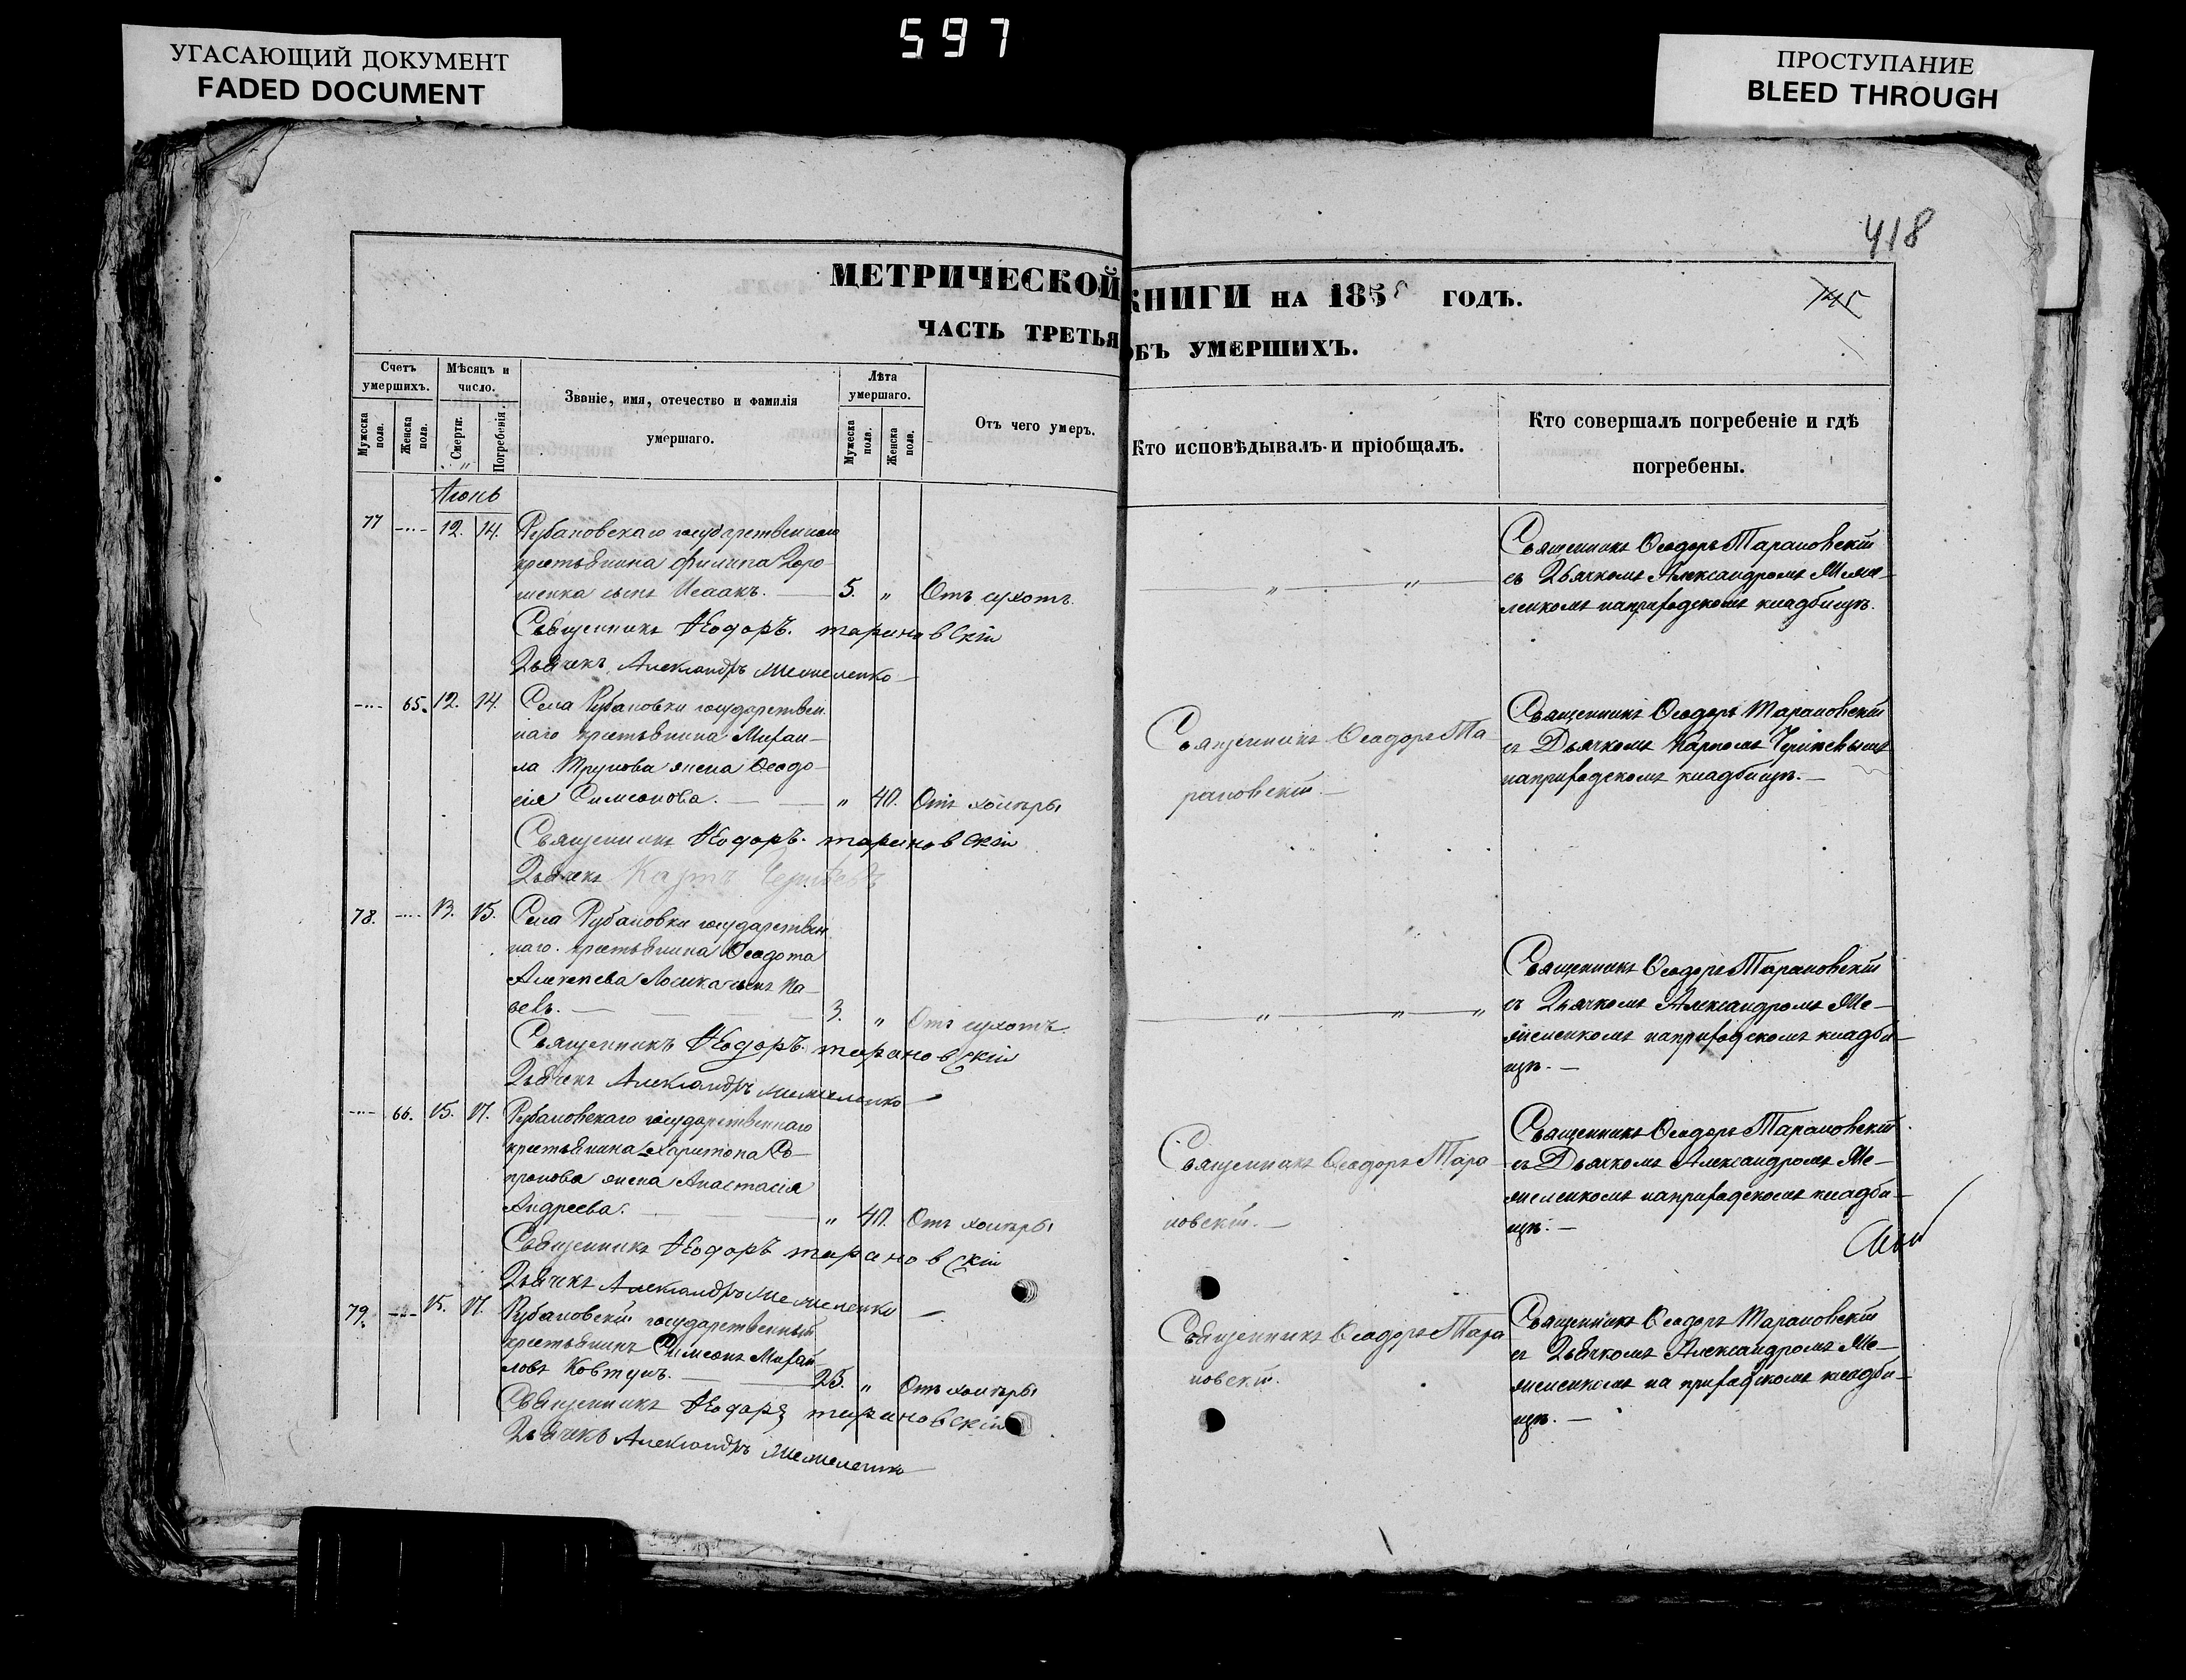 597
УГАСАЮЩИЙ ДОКУМЕНТ
FADED DOCUMENT
ПРОСТУПАНИЕ
BLEED THROUGH
418
145
МЕТРИЧЕСКОЙ КНИГИ НА 1855 ГОДЪ.
ЧАСТЬ ТРЕТЬЯ ОБЪ УМЕРШИХЪ.
Счетъ умершихъ.
Мужеска пола.
Женска пола.
Мѣсяцъ и число.
Смерти.
Погребенія.
Званіе, имя, отечество и фамилія
умершаго.
Лѣта умершаго.
Мужеска пола.
Женска пола.
Отъ чего умеръ.
Кто исповѣдывалъ и пріобщалъ.
Кто совершалъ погребеніе и гдѣ
погребены.
Іюнь
77 12. 14. Рубановскаго государственнаго
крестьянина Филипа Доро-
шенка сынъ Исаакъ. — 5. „ Отъ сухотъ.
Священникъ Ѳеодоръ Тарановскій
Дьячекъ Александръ
Священникъ Ѳеодоръ Тарановскій
съ Дьячкомъ Александромъ
наприходскомъ кладбищѣ.
65. 12. 14. Села Рубановки государствен-
наго крестьянина Михаи-
ла жена Ѳеодо-
сія Симеонова. — „ 40. Отъ холеры
Священникъ Ѳеодоръ Тарановскій
Дьячекъ Карпъ
Священникъ Ѳеодоръ Та-
рановскій. —
Священникъ Ѳеодоръ Тарановскій
съ Дьячкомъ Карпомъ
наприходскомъ кладбищѣ. —
78. 13. 15. Села Рубановки государствен-
наго крестьянина Ѳеодота
сынъ Па-
велъ. — 3. „ Отъ сухотъ
Священникъ Ѳеодоръ Тарановскій
Дьячекъ Александръ
Священникъ Ѳеодоръ Тарановскій
съ Дьячкомъ Александромъ
наприходскомъ кладби-
щѣ. —
66. 15. 17. Рубановскаго государственнаго
крестьянина Харитона Со-
пронова жена Анастасія
Андреева. — „ 40. Отъ холеры
Священникъ Ѳеодоръ Тарановскій
Дьячекъ Александръ
Священникъ Ѳеодоръ Тара-
новскій. —
Священникъ Ѳеодоръ Тарановскій
съ Дьячкомъ Александромъ
наприходскомъ кладби-
щѣ. —
79. 15. 17. Рубановскій государственный
крестьянинъ Симеонъ Михай-
ловъ Ковтунъ. — 25. „ Отъ холеры
Священникъ Ѳеодоръ Тарановскій
Дьячекъ Александръ
Священникъ Ѳеодоръ Тара-
новскій.
Священникъ Ѳеодоръ Тарановскій
съ Дьячкомъ Александромъ
на приходскомъ кладби-
щѣ. —